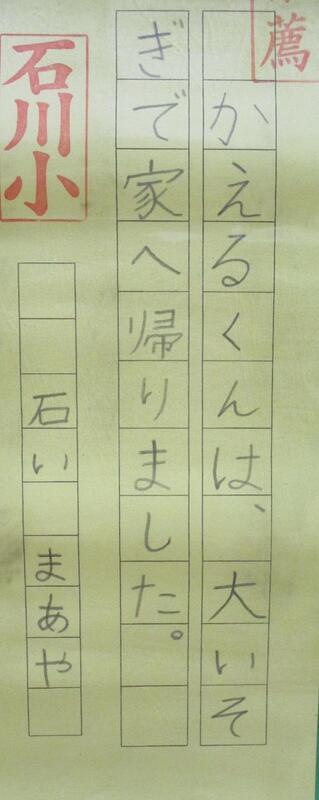 薦
かえるくんは、大いそ
ぎで家へ帰りました。
石川小
石い まあや